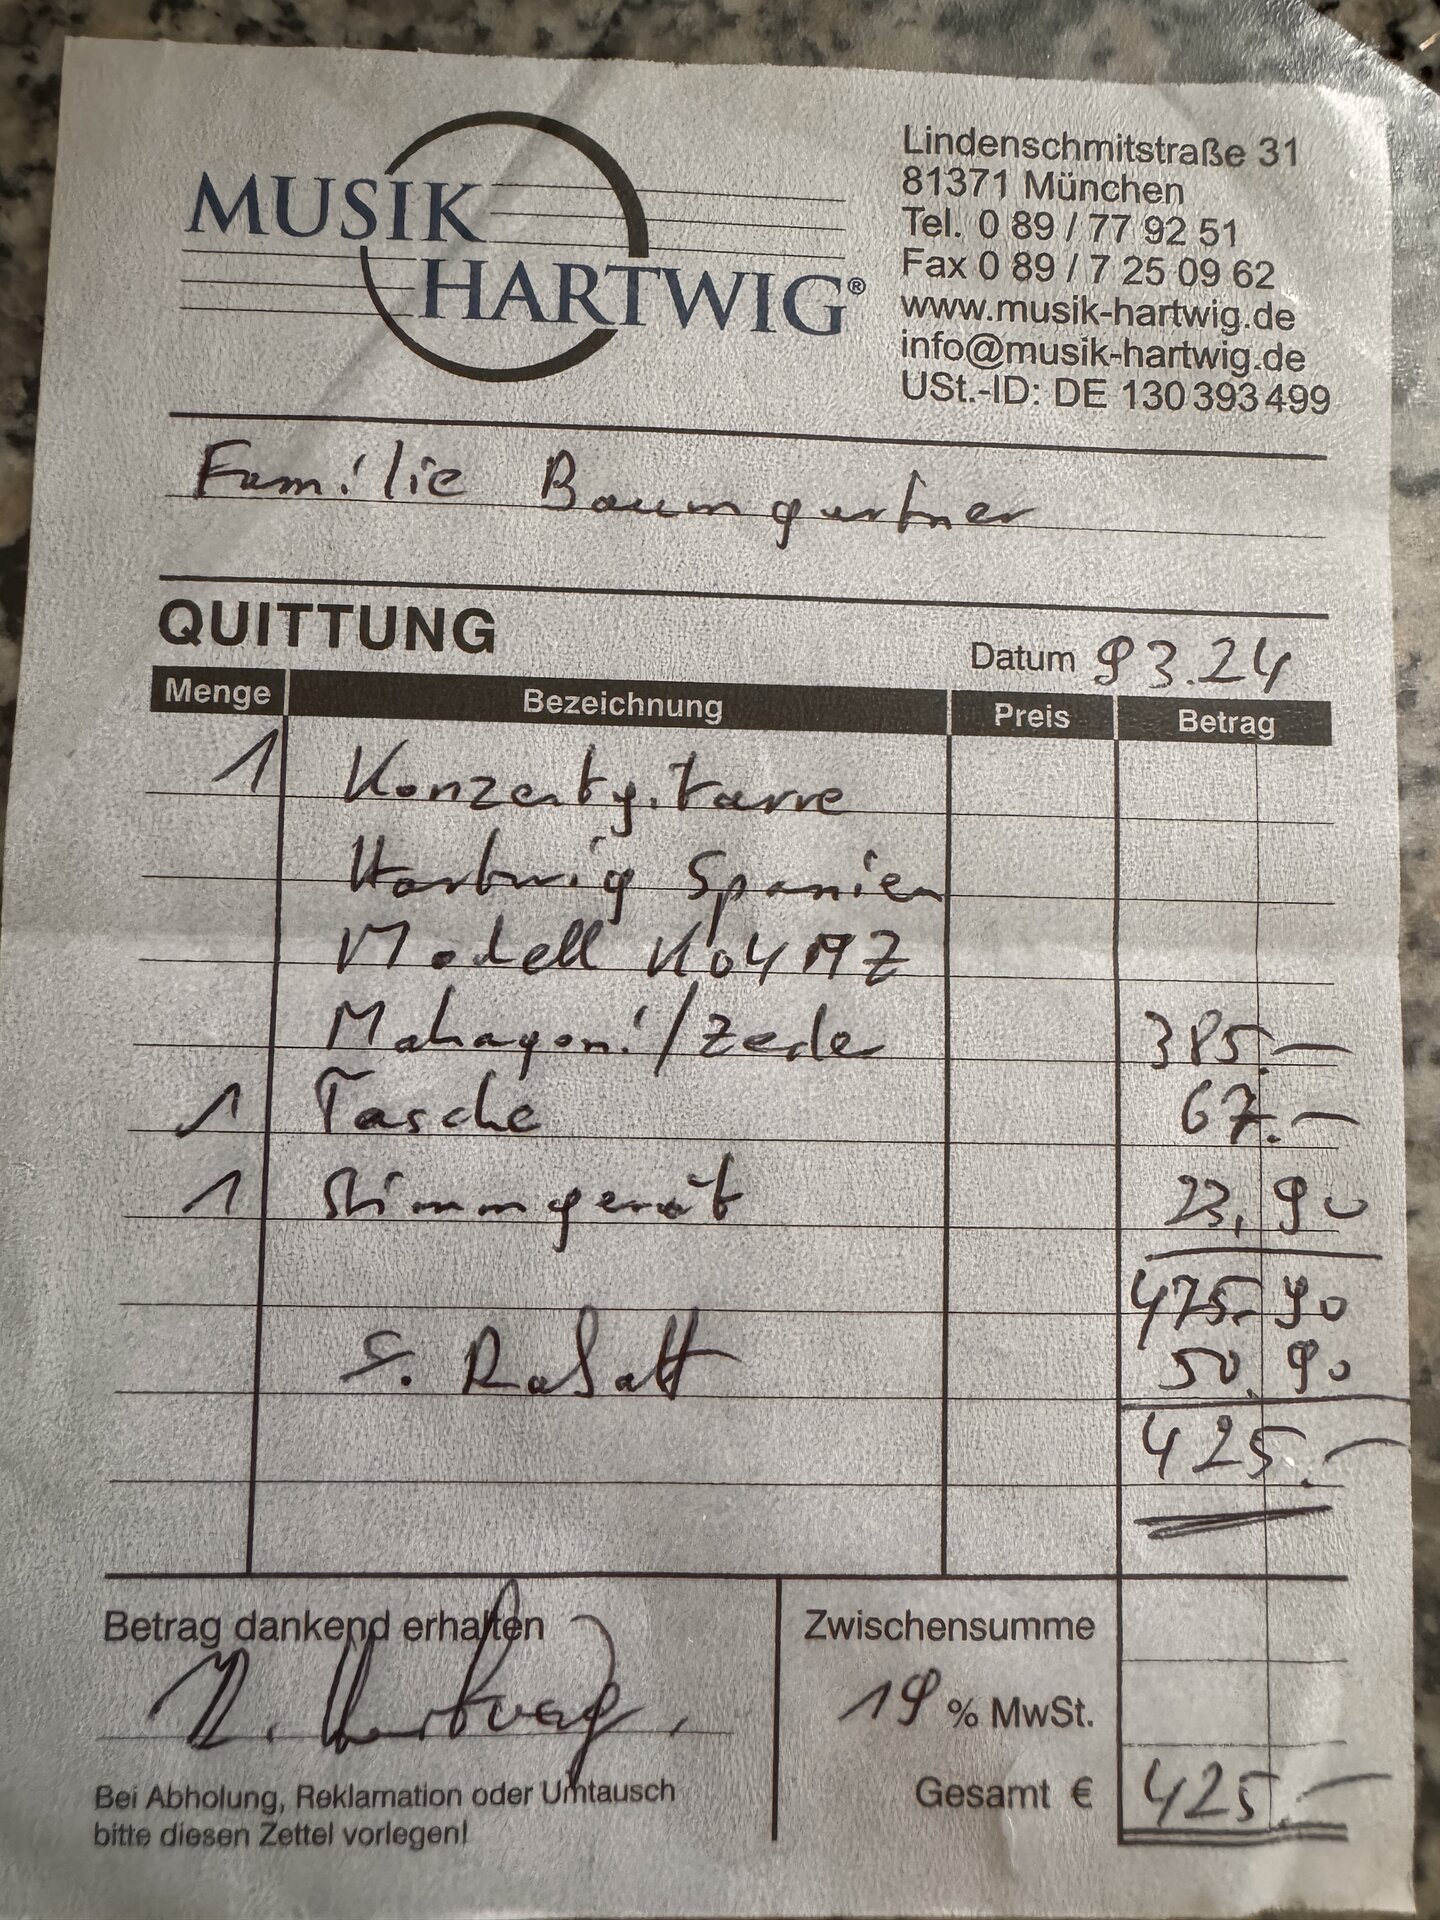 MUSIK
HARTWIG®
Lindenschmitstraße 31
81371 München
Tel. 0 89 / 77 92 51
Fax 0 89 / 7 25 09 62
www.musik-hartwig.de
info@musik-hartwig.de
USt.-ID: DE 130 393 499
Familie Baumgartner
QUITTUNG
Datum 9 3.24
Menge Bezeichnung Preis Betrag
1 Konzertgitarre
Hartwig Spanien
Modell K04MZ
Mahagoni/Zeder 385.—
1 Tasche 67.—
1 Stimmgerät 23,90
475.90
S. Rabatt 50.90
425.—
Betrag dankend erhalten
Bei Abholung, Reklamation oder Umtausch
bitte diesen Zettel vorlegen!
Zwischensumme
19 % MwSt.
Gesamt € 425.—